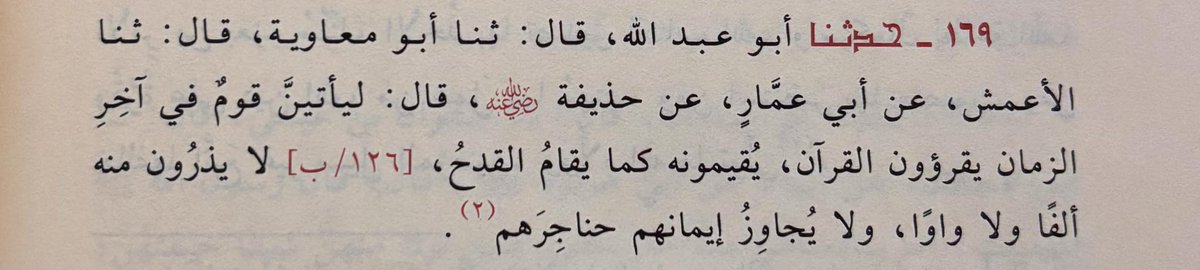 ١٦٩ ـ حدثنا أبو عبد الله، قال: ثنا أبو معاوية، قال: ثنا
الأعمش، عن أبي عمَّارٍ، عن حذيفة رضي الله عنه، قال: ليأتينَّ قومٌ في آخِرِ
الزمان يقرؤون القرآن، يُقيمونه كما يقامُ القدحُ، [١٢٦/ب] لا يذرُون منه
ألفًا ولا واوًا، ولا يُجاوِزُ إيمانهم حناجِرَهم(٢).